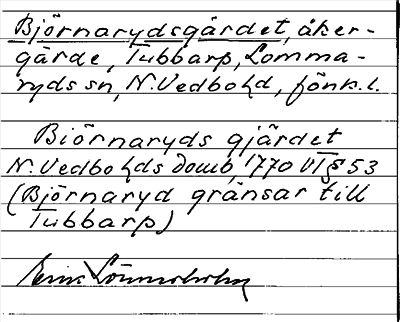 Björnarydsgärdet, åker-
gärde, Tubbarp, Lomma-
ryds sn, N. Vedbo hd, Jönk. l.
Biörnaryds gjärdet
N. Vedbo hds domb. 1770 VI § 53
(Björnaryd gränsar till
Tubbarp)
Erik Lönnerholm